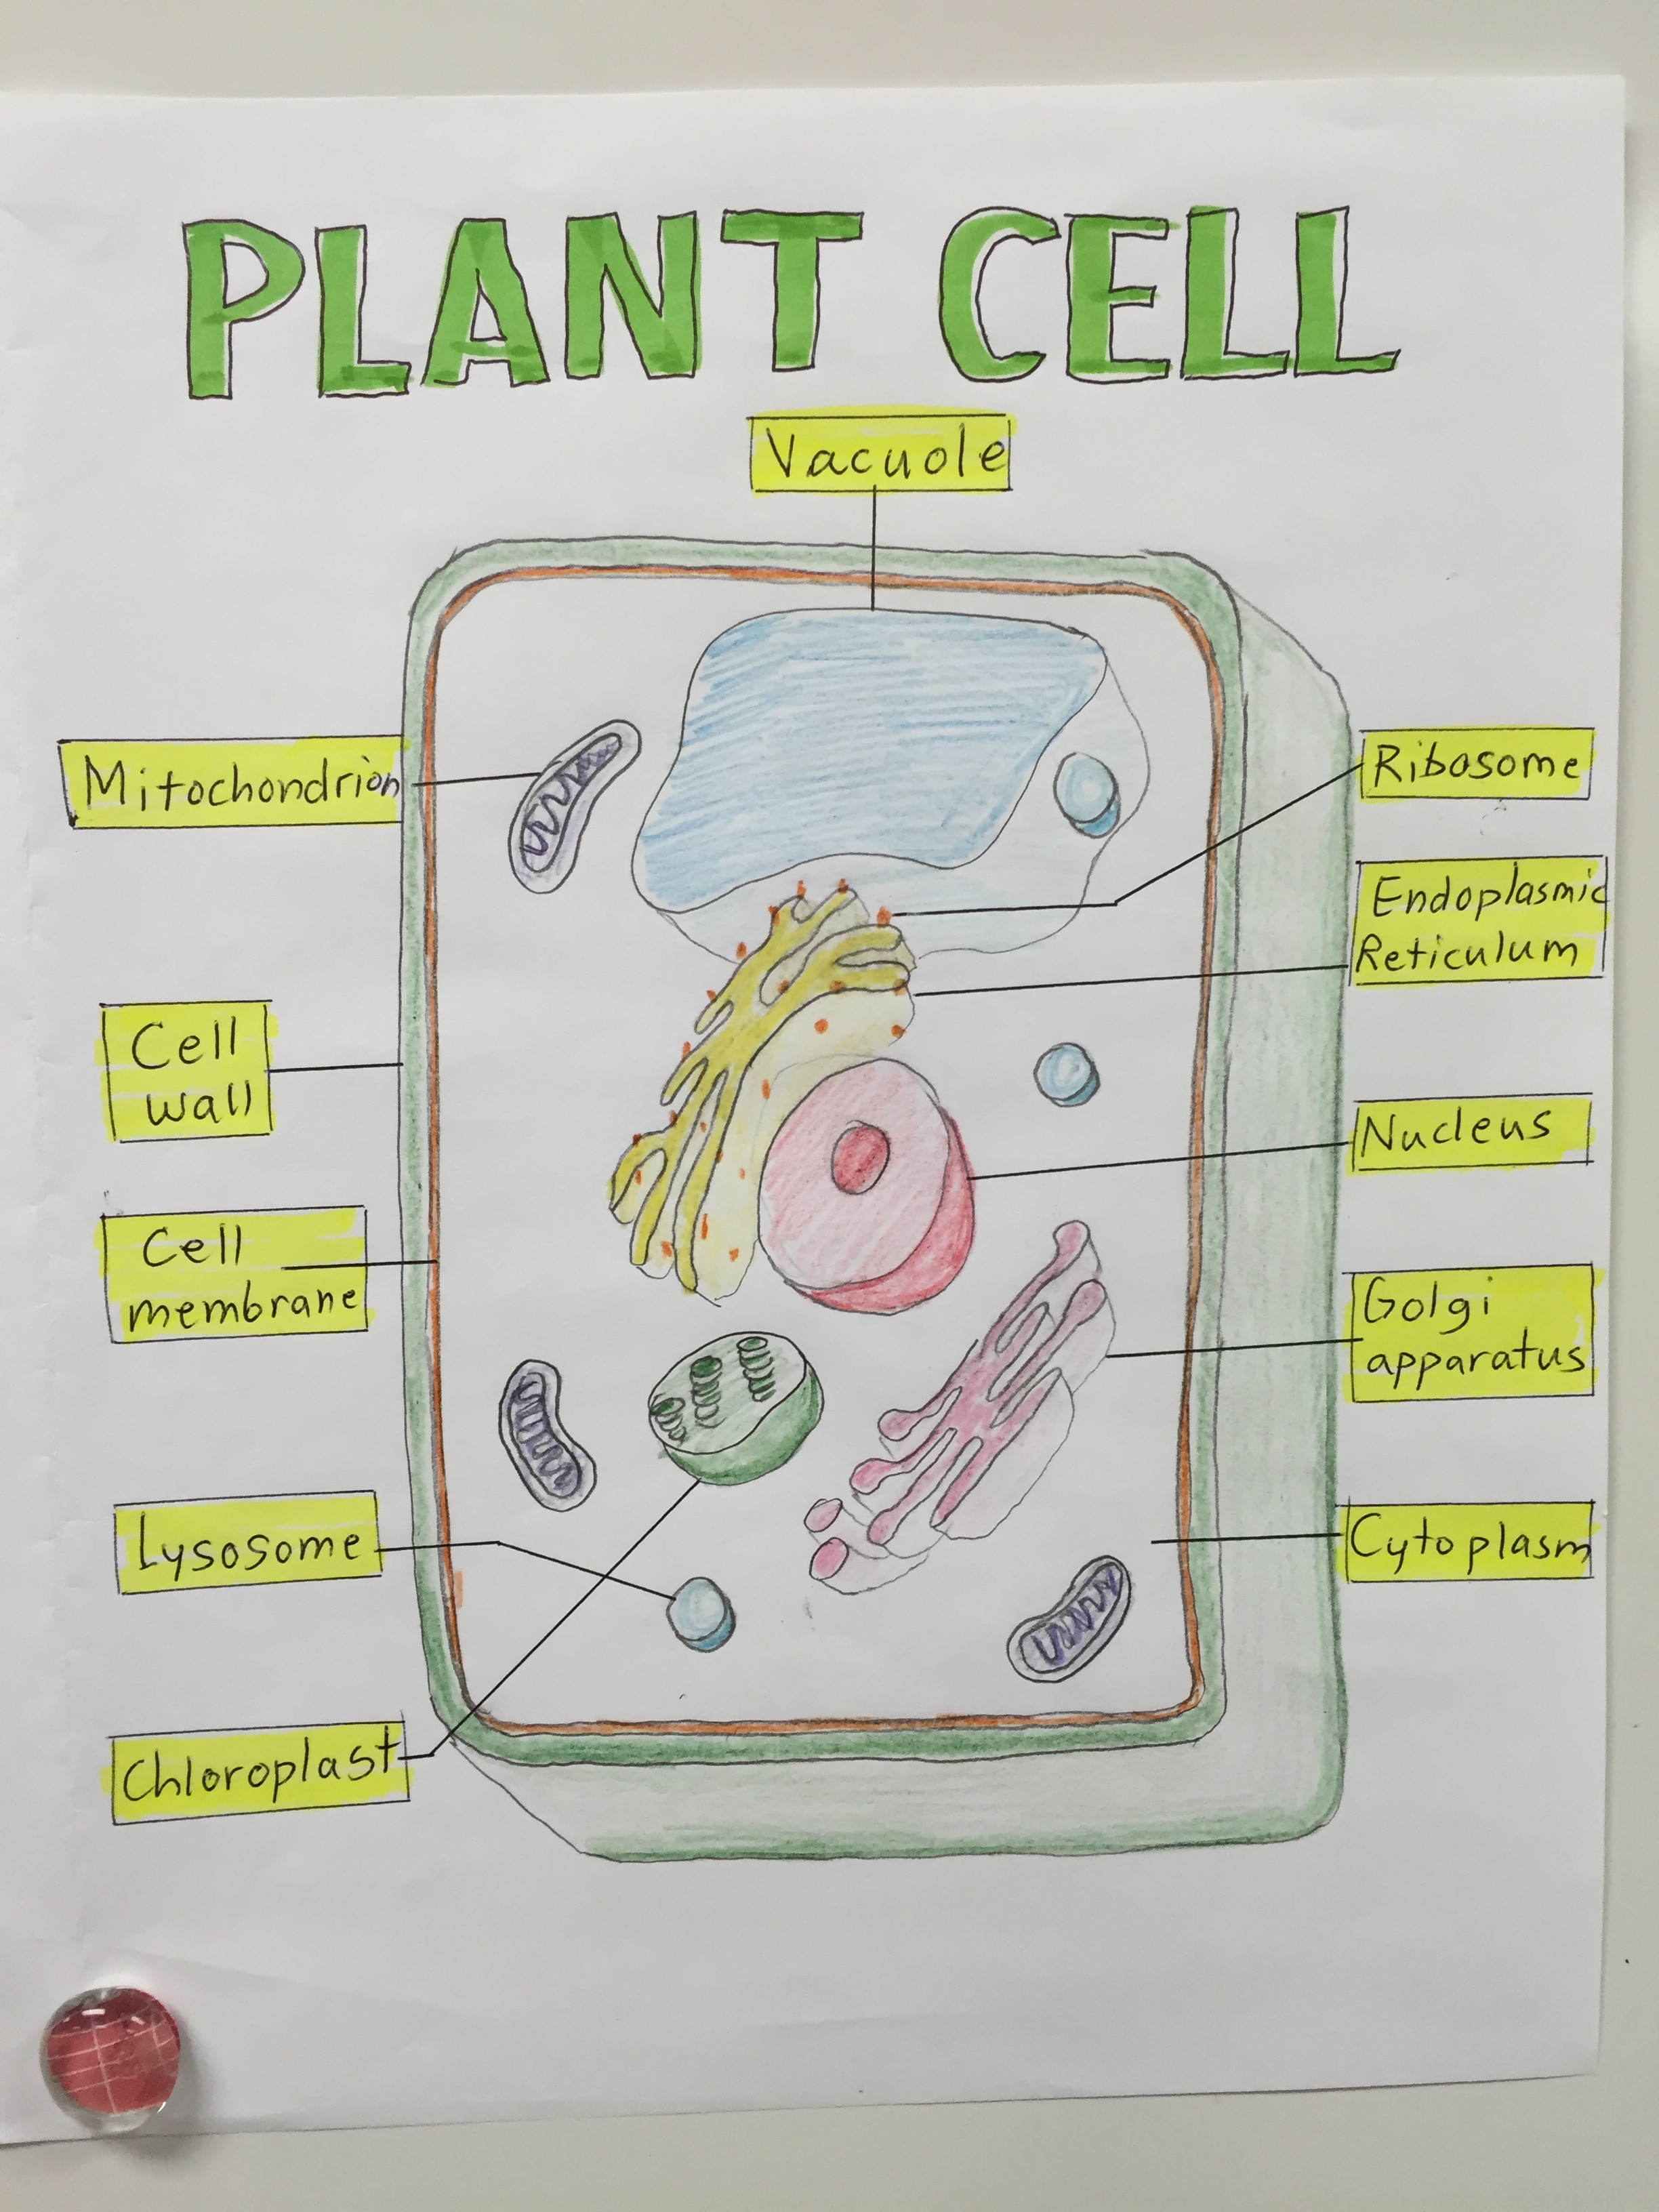 PLANT CELL
Vacuole
Mitochondrion
Ribosome
Endoplasmic
Reticulum
Cell
wall
Nucleus
Cell
membrane
Golgi
apparatus
Lysosome
Cytoplasm
Chloroplast